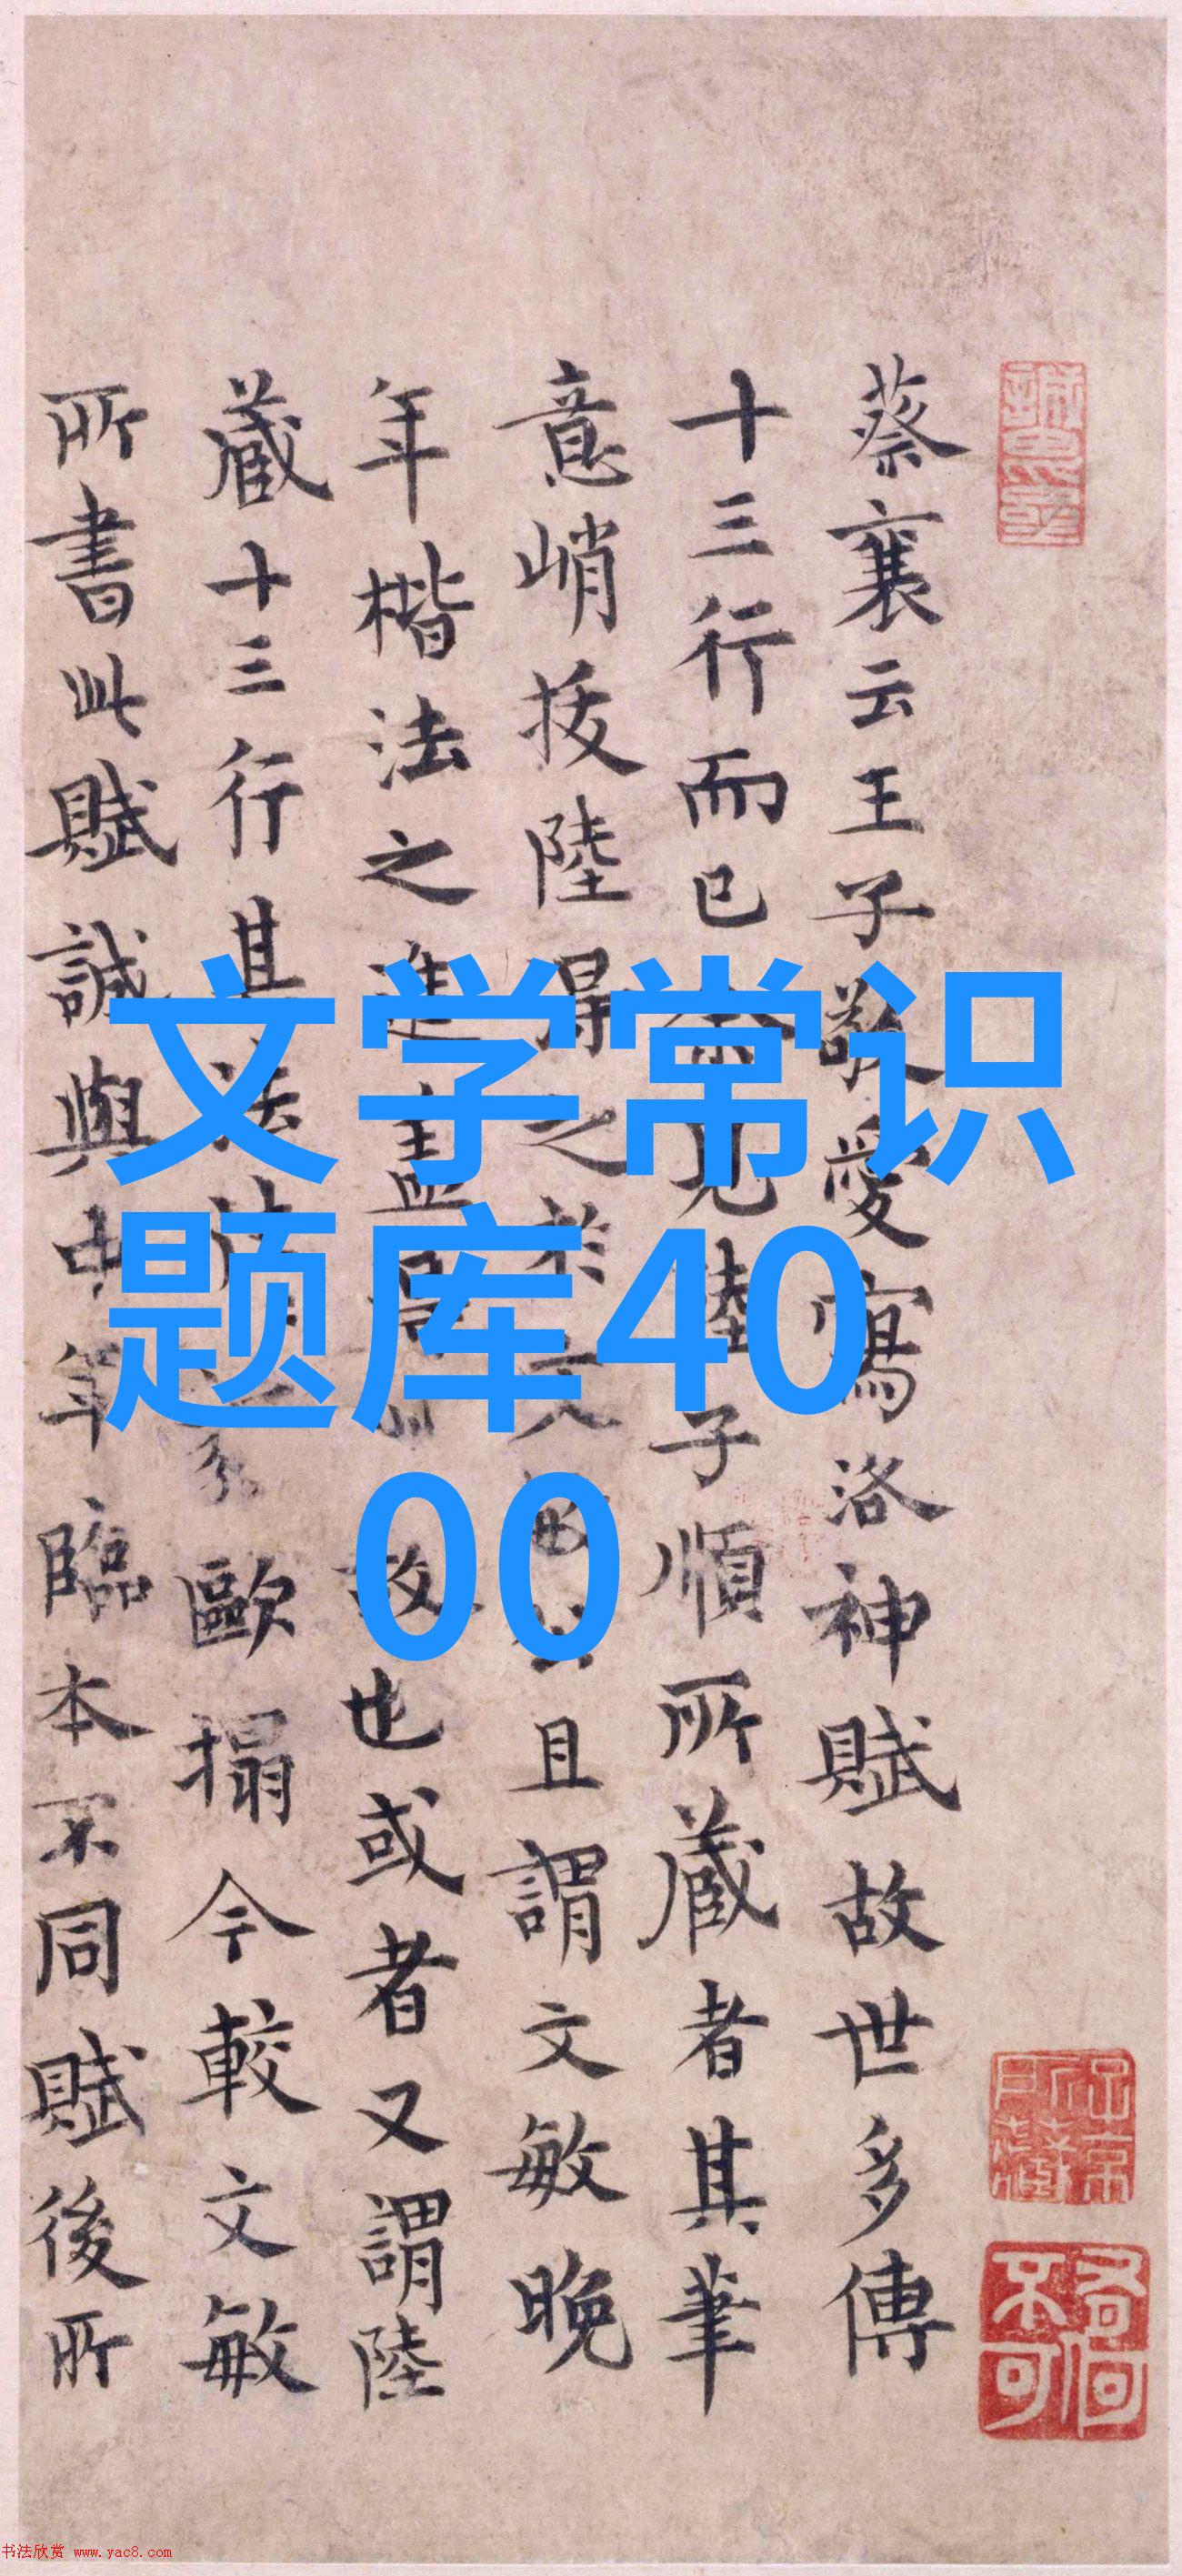 蔡襄云王子敬愛寫洛神賦故世多傳
十三行而已余見陸子順所藏者其筆
意峭拔陸得之於且謂文敏晚
年楷法之進盖故也或者又謂陸
藏十三行其法歐搨今較文敏
所書此賦誠與中年臨本不同賦後所
文学常识
题库40
00
书法欣赏 www.yac8.com